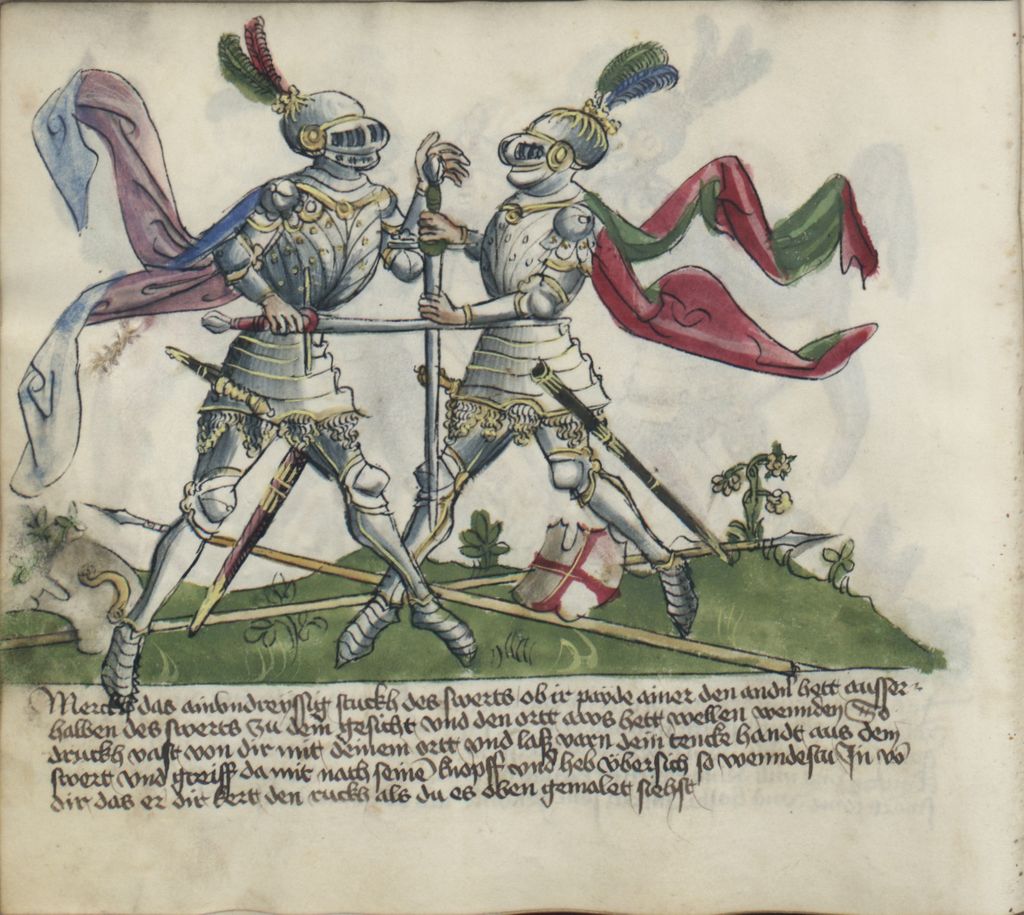 Merckh das ainvndreyssig stuckh des swerts ob ir payde ainer den andn hett ausser-
halben des swerts zu dem gesicht vnd den ortt aws hett wellen wennden So
druckh vast von dir mit deinem ortt vnd lass varn dein tencke handt aus dem
swert vnd greiff damit nach seinē knopff vnd heb vbersich so wenndestu In vō
dir das er dir kert den ruckh als du es oben gemalet siehst